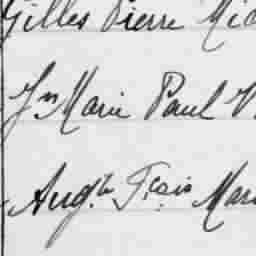 Gilles Pierre Mic
Jn Marie Paul V
Augte Fçois Mari